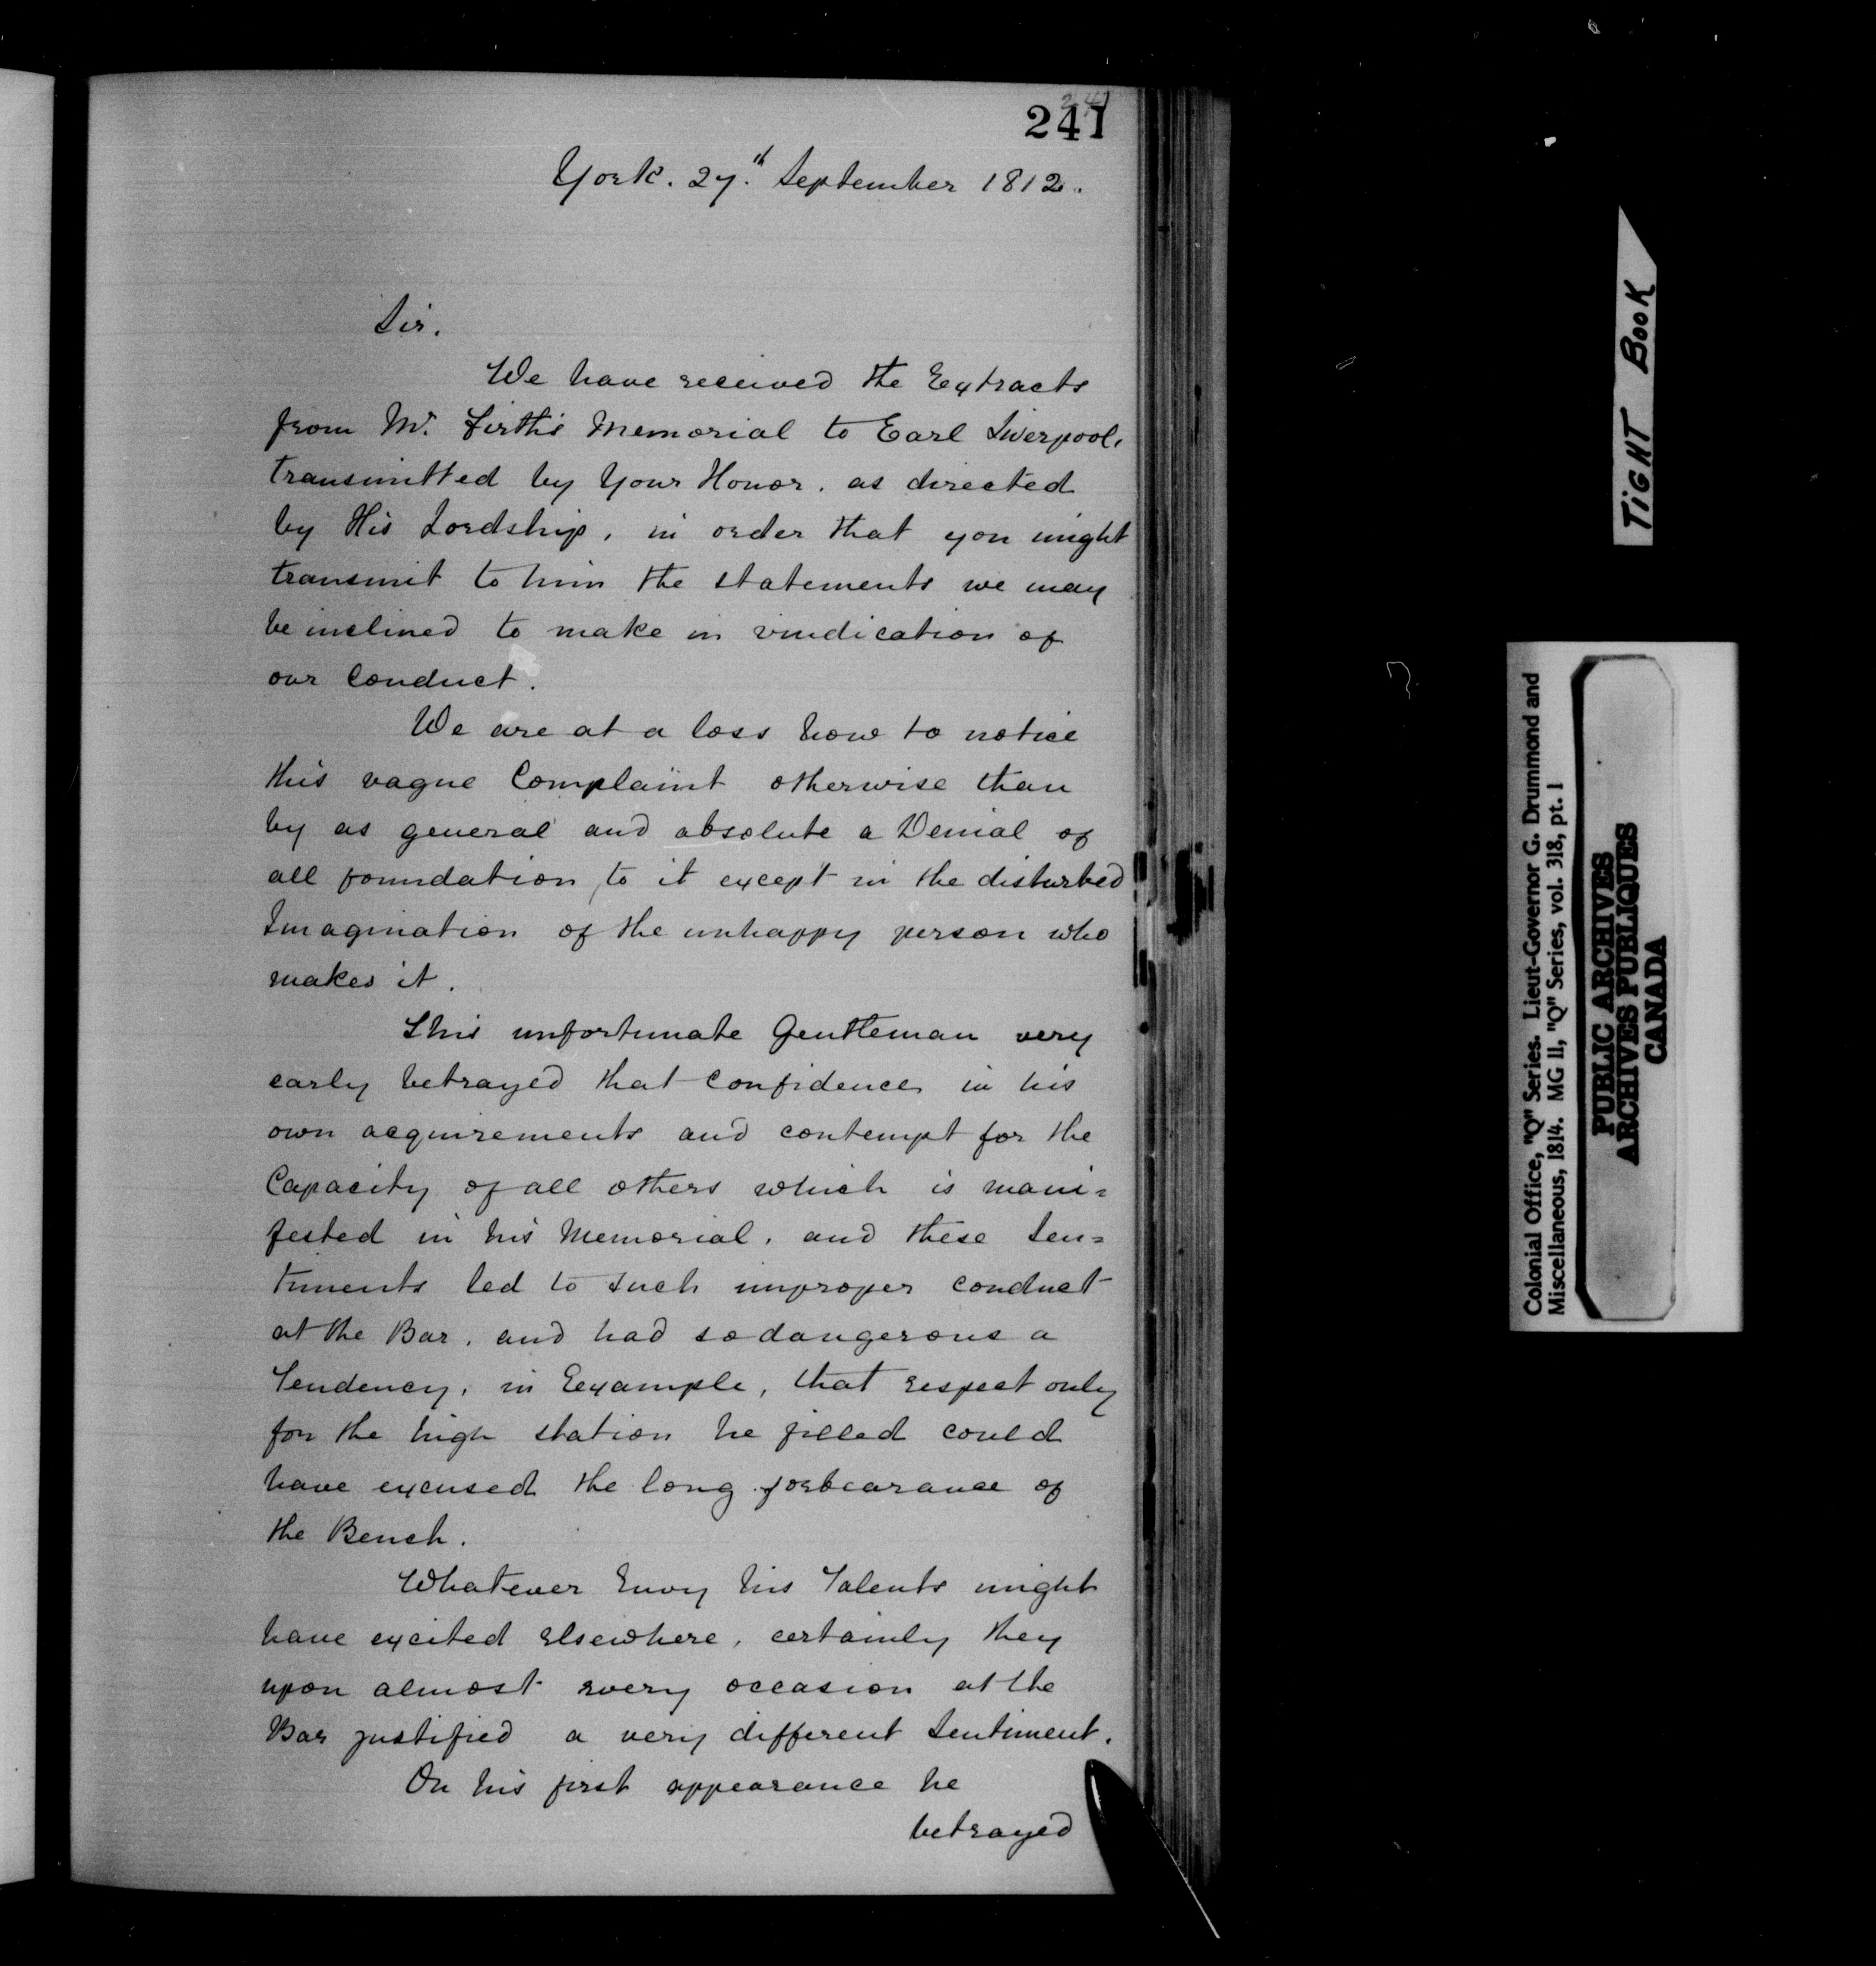 241
York. 27.th September 1812.
Sir.
We have received the Extracts
from Mr. Firth's Memorial to Earl Liverpool,
transmitted by Your Honor. as directed
by His Lordship, in order that you might
transmit to him the statements we may
be inclined to make in vindication of
our Conduct.
We are at a loss how to notice
this vague Complaint otherwise than
by as general and absolute a Denial of
all foundation, to it except in the disturbed
Imagination of the unhappy person who
makes it.
This unfortunate Gentleman very
early betrayed that Confidence in his
own acquirements and contempt for the
Capacity of all others which is mani=
fested in his Memorial, and these Sen=
timents led to such improper conduct
at the Bar, and had so dangerous a
Tendency, in Example, that respect only
for the high station he filled could
have excused the long forbearance of
the Bench.
Whatever Envy his Talents might
have excited elsewhere, certainly they
upon almost every occasion at the
Bar justified a very different Sentiment.
On his first appearance he
betrayed
TIGHT BOOK
Colonial Office, "Q" Series. Lieut-Governor G. Drummond and
Miscellaneous, 1814. MG 11, "Q" Series, vol. 318, pt. 1
PUBLIC ARCHIVES
ARCHIVES PUBLIQUES
CANADA